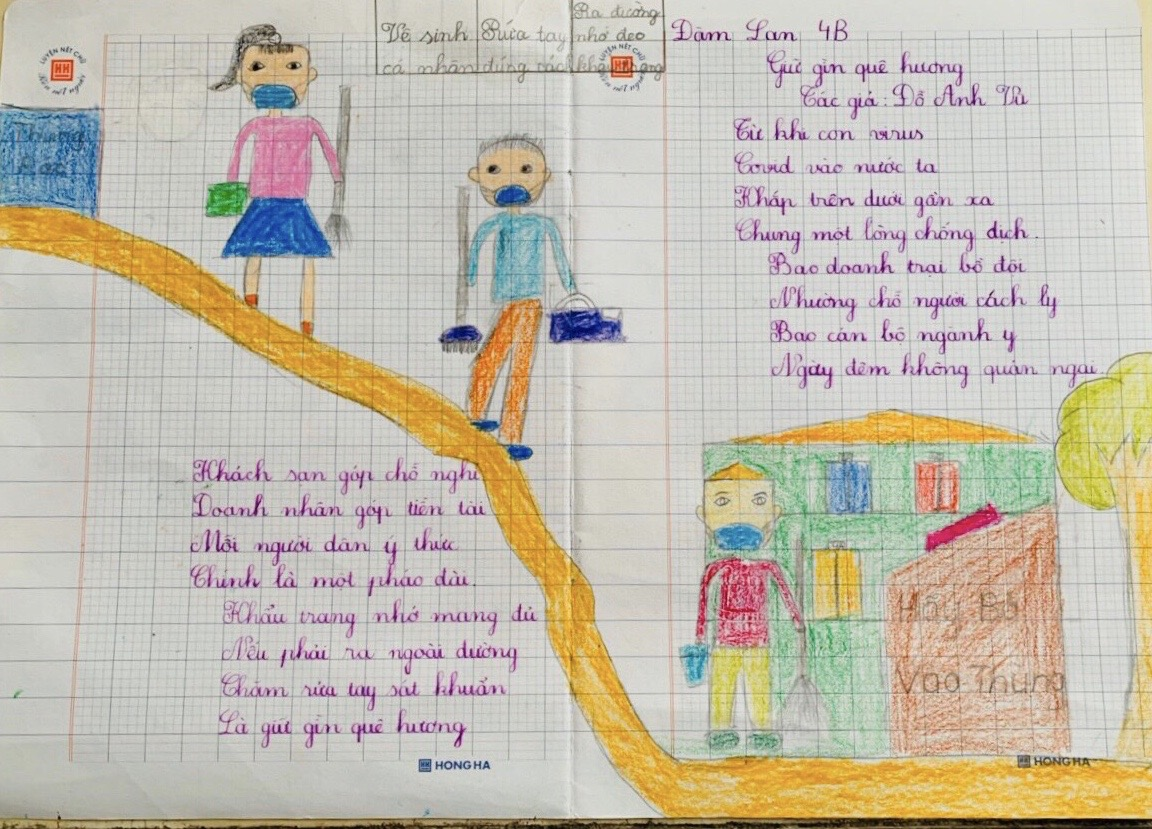 Vệ sinh
cá nhân
Rửa tay
đúng cách
Ra đường
nhớ đeo
khẩu trang
Đàm Lan 4B
Giữ gìn quê hương
Tác giả: Đỗ Anh Vũ
Từ khi con virus
Covid vào nước ta
Khắp trên dưới gần xa
Chung một lòng chống dịch.
Bao doanh trại bộ đội
Nhường chỗ người cách ly
Bao cán bộ ngành y
Ngày đêm không quản ngại.
Khách sạn góp chỗ nghỉ
Doanh nhân góp tiền tài
Mỗi người dân ý thức
Chính là một pháo đài.
Khẩu trang nhớ mang đủ
Nếu phải ra ngoài đường
Chăm rửa tay sát khuẩn
Là giữ gìn quê hương
Thùng
Rác
Hãy Bỏ
Vào Thùng
LUYỆN NÉT CHỮ
RÈN NẾT NGƯỜI
LUYỆN NÉT CHỮ
RÈN NẾT NGƯỜI
HONG HA
HONG HA